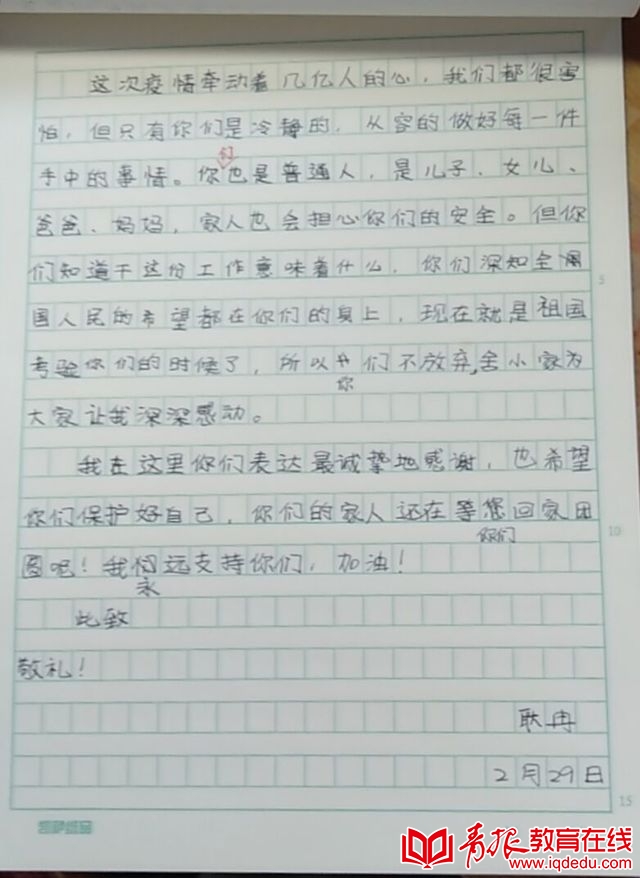 这次疫情牵动着几亿人的心，我们都很害
怕，但只有你们是冷静的，从容的做好每一件
手中的事情。你们也是普通人，是儿子、女儿、
爸爸、妈妈，家人也会担心你们的安全。但你
们知道干这份工作意味着什么，你们深知全
国人民的希望都在你们的身上，现在就是祖国
考验你们的时候了，所以你们不放弃，舍小家为
大家让我深深感动。
我在这里你们表达最诚挚地感谢，也希望
你们保护好自己，你们的家人还在等你们回家团
圆吧！我永远支持你们，加油！
此致
敬礼！
耿冉
2月29日
5
10
15
青报教育在线
www.iqdedu.com